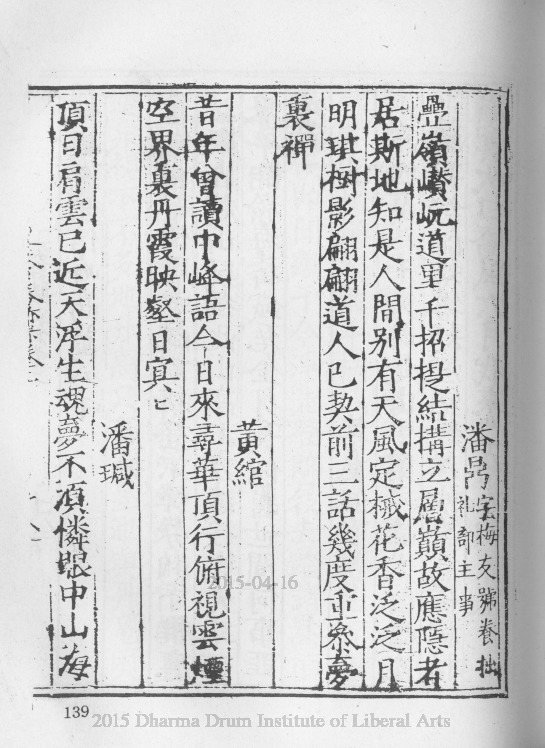 潘咼字梅友號養拙
禮部主事
疊嶺巑岏道里千招提結搆立層巔故應隱者
居斯地知是人間別有天風定檅花香泛泛月
明琪樹影翩翩道人已契前三話幾度重叅夢
裏禪
黃綰
昔年曾讀中峰語今日來尋華頂行俯視雲煙
空界裏丹霞映壑日冥匕
潘瑊
頂日肩雲已近天浮生魂夢不須憐眼中山海
139
2015-04-16
2015 Dharma Drum Institute of Liberal Arts